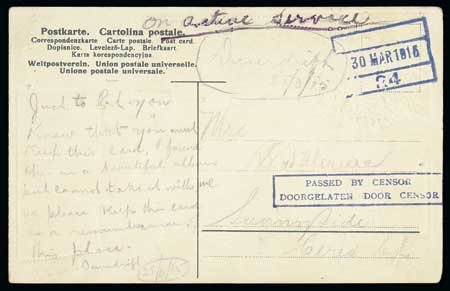 on active service
Postkarte. Cartolina postale.
Correspondenzkarte. Carte postale. Post card.
Dopisnice. Levelező-Lap. Briefkaart.
Karta korespondencyjna.
Weltpostverein. Union postale universelle.
Unione postale universale.
30 MAR 1915
24
Just to let you
know that you must
keep this card, I found
this in a beautiful album
but cannot take it with me
so please keep this card
as a remembrance of
this place.
Mrs
PASSED BY CENSOR
DOORGELATEN DOOR CENSOR
Sunnyside